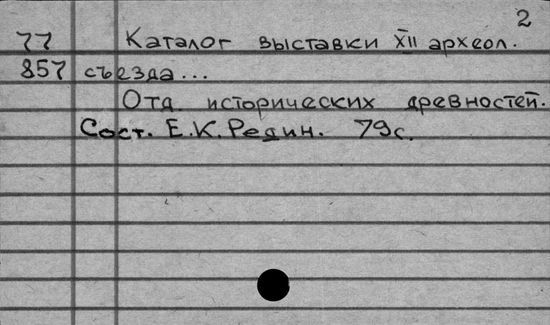 2
77 Каталог выставки XII археол.
857 съезда...
Отд. исторических древностей.
Сост. Е.К.Редин. 79с.